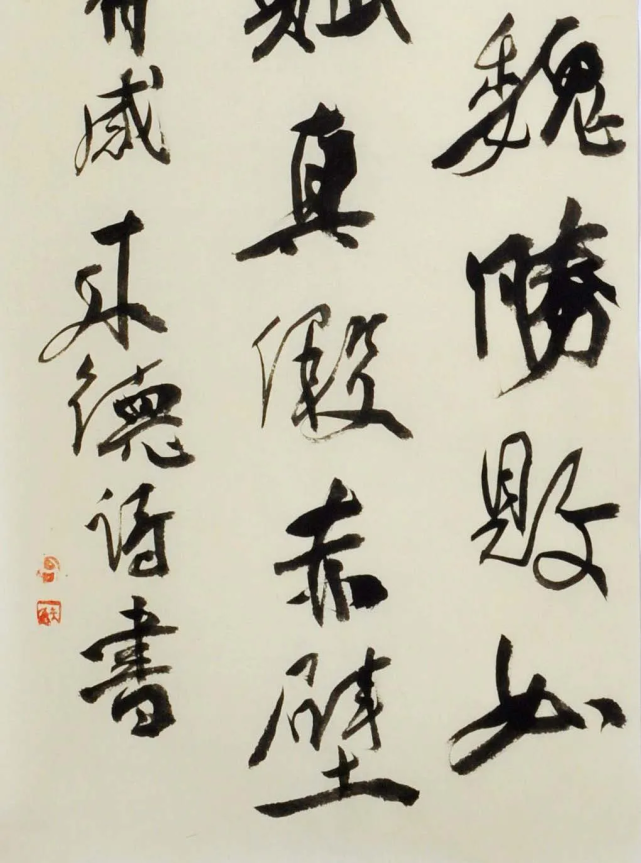 魏勝敗如
賦真假赤壁
有感來德詩書